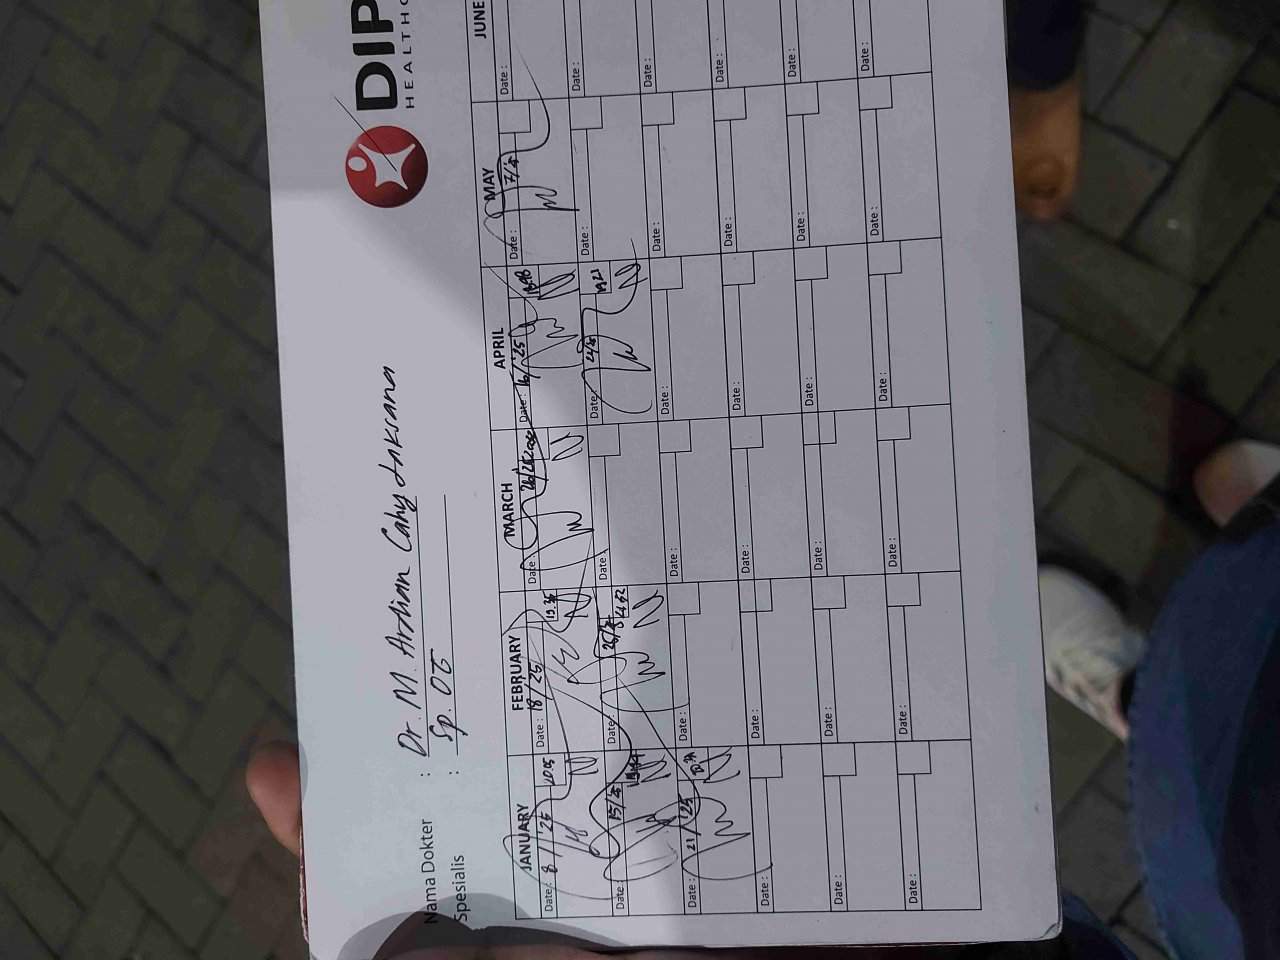 DIP
HEALTHC
Nama Dokter : Dr. M. Ardian Cahy
Spesialis : Sp. OT
JANUARY FEBRUARY MARCH APRIL MAY JUNE
Date : 8/'25 2005 Date : 18/25 19.35 Date : Date : 16/'25 Date : 7/5 Date :
Date : 15/ Date : Date : Date : 24/ 19.21 Date : Date :
Date : 21/'25 Date : Date : Date : Date : Date :
Date : Date : Date : Date : Date : Date :
Date : Date : Date : Date : Date : Date :
Date : Date : Date : Date : Date : Date :